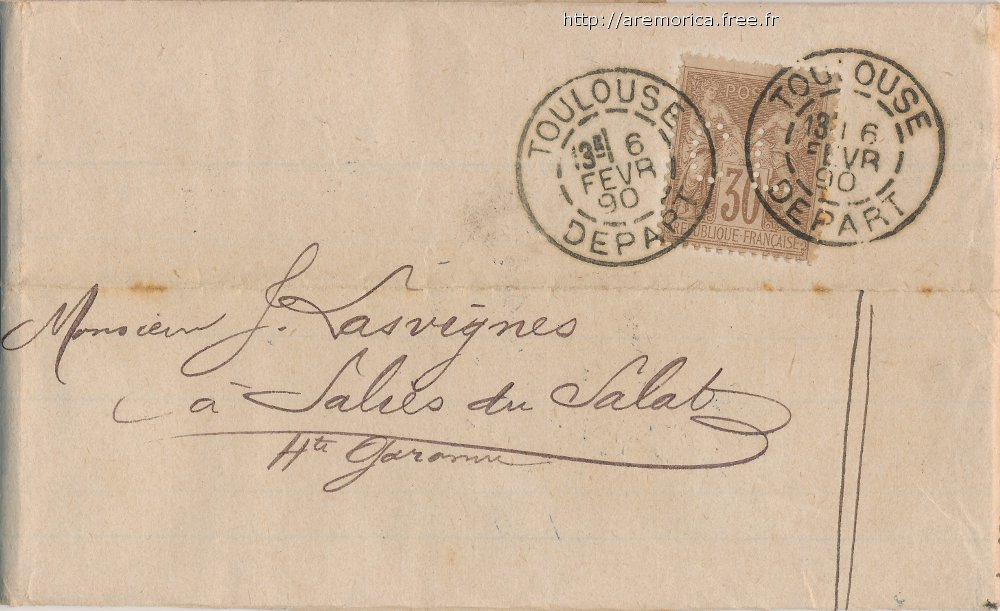 http://aremorica.free.fr
TOULOUSE
13E 6
FEVR
90
DEPART
POS
30
REPUBLIQUE FRANÇAISE
TOULOUSE
13E 6
FEVR
90
DEPART
Monsieur J. Lasvignes
à Salies du Salat
Hte Garonne